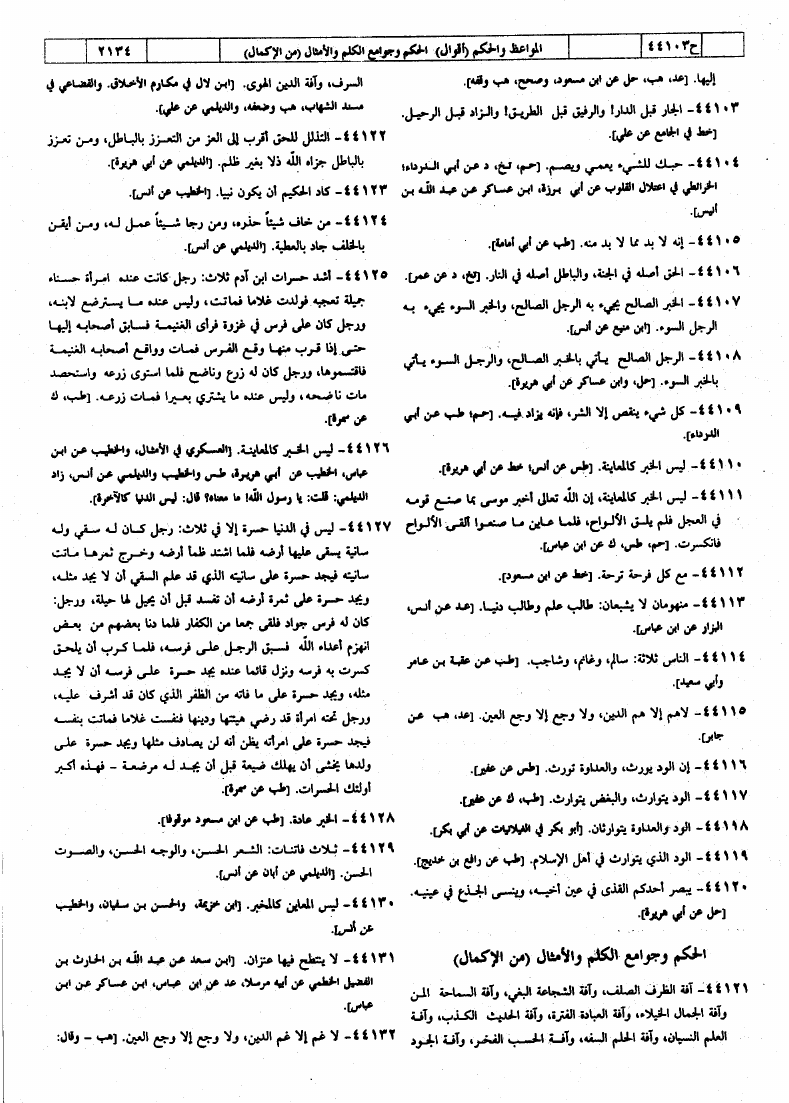 ح٤٤١٠٣
المواعظ والحكم (أقوال) الحكم وجوامع الكلم والأمثال (من الإكمال)
٢١٣٤
إليها. [عد، هب، حل عن ابن مسعود، وصحح، هب وقفه].
٤٤١٠٣- الجار قبل الدار! والرفيق قبل الطريق! والزاد قبل الرحيل.
[خط في الجامع عن علي].
٤٤١٠٤- حبك للشيء يعمي ويصم. [حم، تخ، د عن أبي الدرداء؛
الخرائطي في اعتلال القلوب عن أبي برزة، ابن عساكر عن عبد الله بن
أنيس].
٤٤١٠٥- إنه لا بد مما لا بد منه. [طب عن أبي أمامة].
٤٤١٠٦- الحق أصله في الجنة، والباطل أصله في النار. [تخ، د عن عمر].
٤٤١٠٧- الخبر الصالح يجيء به الرجل الصالح، والخبر السوء يجيء به
الرجل السوء. [ابن منيع عن أنس].
٤٤١٠٨- الرجل الصالح يأتي بالخبر الصالح، والرجل السوء يأتي
بالخبر السوء. [حل، وابن عساكر عن أبي هريرة].
٤٤١٠٩- كل شيء ينقص إلا الشر، فإنه يزاد فيه. [حم؛ طب عن أبي
الدرداء].
٤٤١١٠- ليس الخبر كالمعاينة. [طس عن أنس؛ خط عن أبي هريرة].
٤٤١١١- ليس الخبر كالمعاينة، إن الله تعالى أخبر موسى بما صنع قومه
في العجل فلم يلق الألواح، فلما عاين ما صنعوا ألقى الألواح
فانكسرت. [حم، طس، ك عن ابن عباس].
٤٤١١٢- مع كل فرحة ترحة. [خط عن ابن مسعود].
٤٤١١٣- منهومان لا يشبعان: طالب علم وطالب دنيا. [عد عن أنس،
البزار عن ابن عباس].
٤٤١١٤- الناس ثلاثة: سالم، وغانم، وشاجب. [طب عن عقبة بن عامر
وأبي سعيد].
٤٤١١٥- لاهم إلا هم الدين، ولا وجع إلا وجع العين. [عد، هب عن
جابر].
٤٤١١٦- إن الود يورث، والعداوة تورث. [طس عن عفير].
٤٤١١٧- الود يتوارث، والبغض يتوارث. [طب، ك عن عفير].
٤٤١١٨- الود والعداوة يتوارثان. [أبو بكر في الغيلانيات عن أبي بكر].
٤٤١١٩- الود الذي يتوارث في أهل الإسلام. [طب عن رافع بن خديج].
٤٤١٢٠- يبصر أحدكم القذى في عين أخيه، وينسى الجذع في عينيه.
[حل عن أبي هريرة].
الحكم وجوامع الكلم والأمثال (من الإكمال)
٤٤١٢١- آفة الظرف الصلف، وآفة الشجاعة البغي، وآفة السماحة المن
وآفة الجمال الخيلاء، وآفة العبادة الفترة، وآفة الحديث الكذب، وآفة
العلم النسيان، وآفة الحلم السفه، وآفة الحسب الفخر، وآفة الجود
السرف، وآفة الدين الهوى. [ابن لال في مكارم الأخلاق. والقضاعي في
مسند الشهاب، هب وضعفه، والديلمي عن علي].
٤٤١٢٢- التذلل للحق أقرب إلى العز من التعزز بالباطل، ومن تعزز
بالباطل جزاه الله ذلا بغير ظلم. [الديلمي عن أبي هريرة].
٤٤١٢٣- كاد الحكيم أن يكون نبيا. [الخطيب عن أنس].
٤٤١٢٤- من خاف شيئاً حذره، ومن رجا شيئاً عمل له، ومن أيقن
بالخلف جاد بالعطية. [الديلمي عن أنس].
٤٤١٢٥- أشد حسرات ابن آدم ثلاث: رجل كانت عنده امرأة حسناء
جميلة تعجبه فولدت غلاما فماتت، وليس عنده ما يسترضع لابنه،
ورجل كان على فرس في غزوة فرأى الغنيمة فسابق أصحابه إليها
حتى إذا قرب منها وقع الفرس فمات وواقع أصحابه الغنيمة
فاقتسموها، ورجل كان له زرع وناضح فلما استوى زرعه واستحصد
مات ناضحه، وليس عنده ما يشتري بعيرا فمات زرعه. [طب، ك
عن سمرة].
٤٤١٢٦- ليس الخبر كالمعاينة. [العسكري في الأمثال، والخطيب عن ابن
عباس، الخطيب عن أبي هريرة، طس والخطيب والديلمي عن أنس، زاد
الديلمي: قلت: يا رسول الله! ما معناه؟ قال: ليس الدنيا كالآخرة].
٤٤١٢٧- ليس في الدنيا حسرة إلا في ثلاث: رجل كان له سقي وله
سانية يسقى عليها أرضه فلما اشتد ظمأ أرضه وخرج ثمرها ماتت
سانيته فيجد حسرة على سانيته الذي قد علم السقي أن لا يجد مثله،
ويجد حسرة على ثمرة أرضه أن تفسد قبل أن يحيل لها حيلة، ورجل:
كان له فرس جواد فلقى جمعا من الكفار فلما دنا بعضهم من بعض
انهزم أعداء الله فسبق الرجل على فرسه، فلما كرب أن يلحق
كسرت به فرسه ونزل قائما عنده يجد حسرة على فرسه أن لا يجد
مثله، ويجد حسرة على ما فاته من الظفر الذي كان قد أشرف عليه،
ورجل تحته امرأة قد رضي هيئتها ودينها فنفست غلاما فماتت بنفسه
فيجد حسرة على امرأته يظن أنه لن يصادف مثلها ويجد حسرة على
ولدها يخشى أن يهلك ضيعة قبل أن يجد له مرضعة - فهذه أكبر
أولئك الحسرات. [طب عن سمرة].
٤٤١٢٨- الخير عادة. [طب عن ابن مسعود موقوفا].
٤٤١٢٩- ثلاث فاتنات: الشعر الحسن، والوجه الحسن، والصوت
الحسن. [الديلمي عن أبان عن أنس].
٤٤١٣٠- ليس المعاين كالمخبر. [ابن خزيمة، والحسن بن سفيان، والخطيب
عن أنس].
٤٤١٣١- لا ينتطح فيها عنزان. [ابن سعد عن عبد الله بن الحارث بن
الفضيل الخطمي عن أبيه مرسلا، عد عن ابن عباس، ابن عساكر عن ابن
عباس].
٤٤١٣٢- لا غم إلا غم الدين، ولا وجع إلا وجع العين. [هب - وقال: